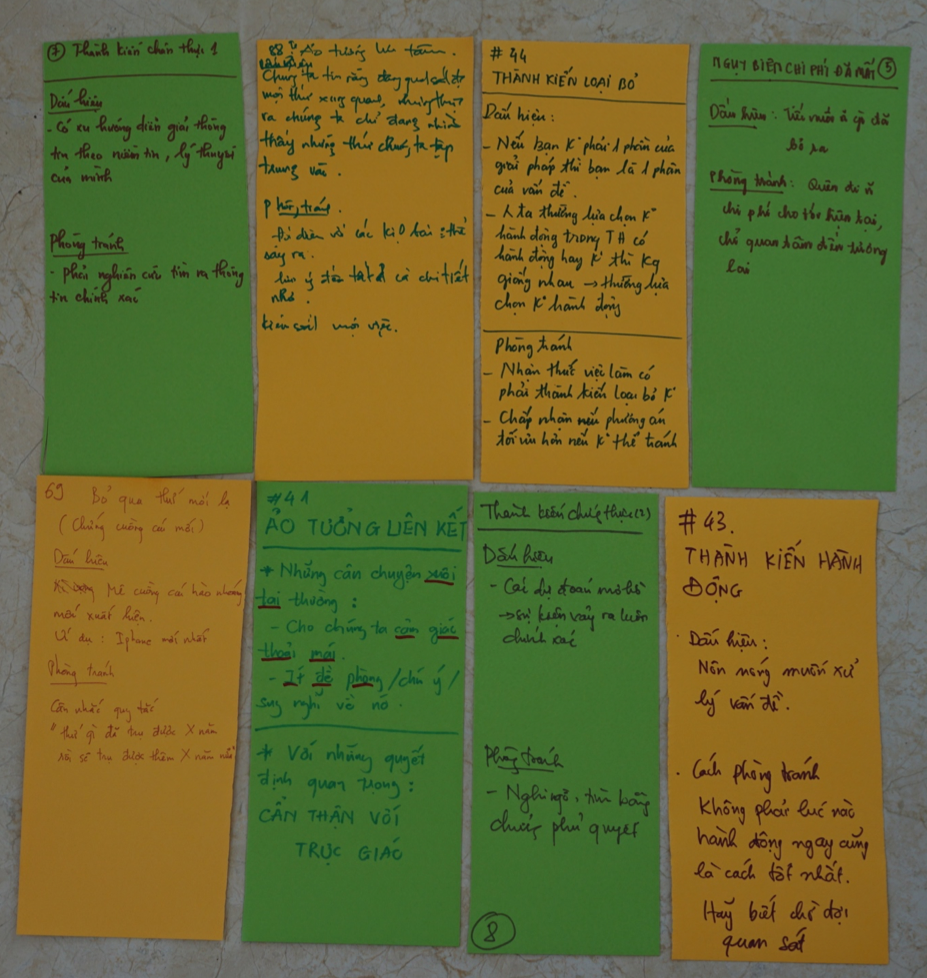 7 Thành kiến chứng thực 1
Dấu hiệu
- Có xu hướng diễn giải thông
tin theo niềm tin, lý thuyết
của mình
Phòng tránh
- phải nghiên cứu tìm ra thông
tin chính xác
88: Ảo tưởng lưu tâm.
Chúng ta tin rằng đang quan sát đc
mọi thứ xung quanh, nhưng thực
ra chúng ta chỉ đang nhìn
thấy những thứ chúng ta tập
trung vào.
phòng tránh.
- Đối diện với các thể
xảy ra.
- lưu ý đến tất cả chi tiết
nhỏ.
kiểm soát mọi việc.
# 44
THÀNH KIẾN LOẠI BỎ
Dấu hiệu:
- Nếu bạn K° phải 1 phần của
giải pháp thì bạn là 1 phần
của vấn đề.
- Ta thường lựa chọn K°
hành động trong TH có
hành động hay K° thì Kq
giống nhau → thường lựa
chọn K° hành động
Phòng tránh
- Nhận thức việc làm có
phải thành kiến loại bỏ K°
- Chấp nhận nếu phương án
tối ưu hơn nếu K° thể tránh
NGỤY BIỆN CHI PHÍ ĐÃ MẤT 5
Dấu hiệu: Tiếc nuối cái gì đã
bỏ ra
Phòng tránh: Quên đi
chi phí cho tới hiện tại,
chỉ quan tâm đến tương
lai
69 Bỏ qua thứ mới lạ
(Chứng cuồng cái mới)
Dấu hiệu
Mê cuồng cái hào nhoáng
mới xuất hiện.
Ví dụ: Iphone mới nhất
Phòng tránh
Cân nhắc quy tắc
"thứ gì đã trụ được X năm
sẽ trụ được thêm X năm nữa"
#41
ẢO TƯỞNG LIÊN KẾT
* Những câu chuyện xuôi
tai thường:
- Cho chúng ta cảm giác
thoải mái.
- Ít đề phòng/chú ý/
suy nghĩ về nó.
* Với những quyết
định quan trọng:
CẨN THẬN VỚI
TRỰC GIÁC
Thành kiến chứng thực (2)
Dấu hiệu
- Các dự đoán mơ hồ
→ sự kiện xảy ra luôn
chính xác
Phòng tránh
- Nghi ngờ, tìm bằng
chứng phủ quyết
8
# 43.
THÀNH KIẾN HÀNH
ĐỘNG
Dấu hiệu:
Nôn nóng muốn xử
lý vấn đề.
. Cách phòng tránh
Không phải lúc nào
hành động ngay cũng
là cách tốt nhất.
Hãy biết chờ đợi
quan sát